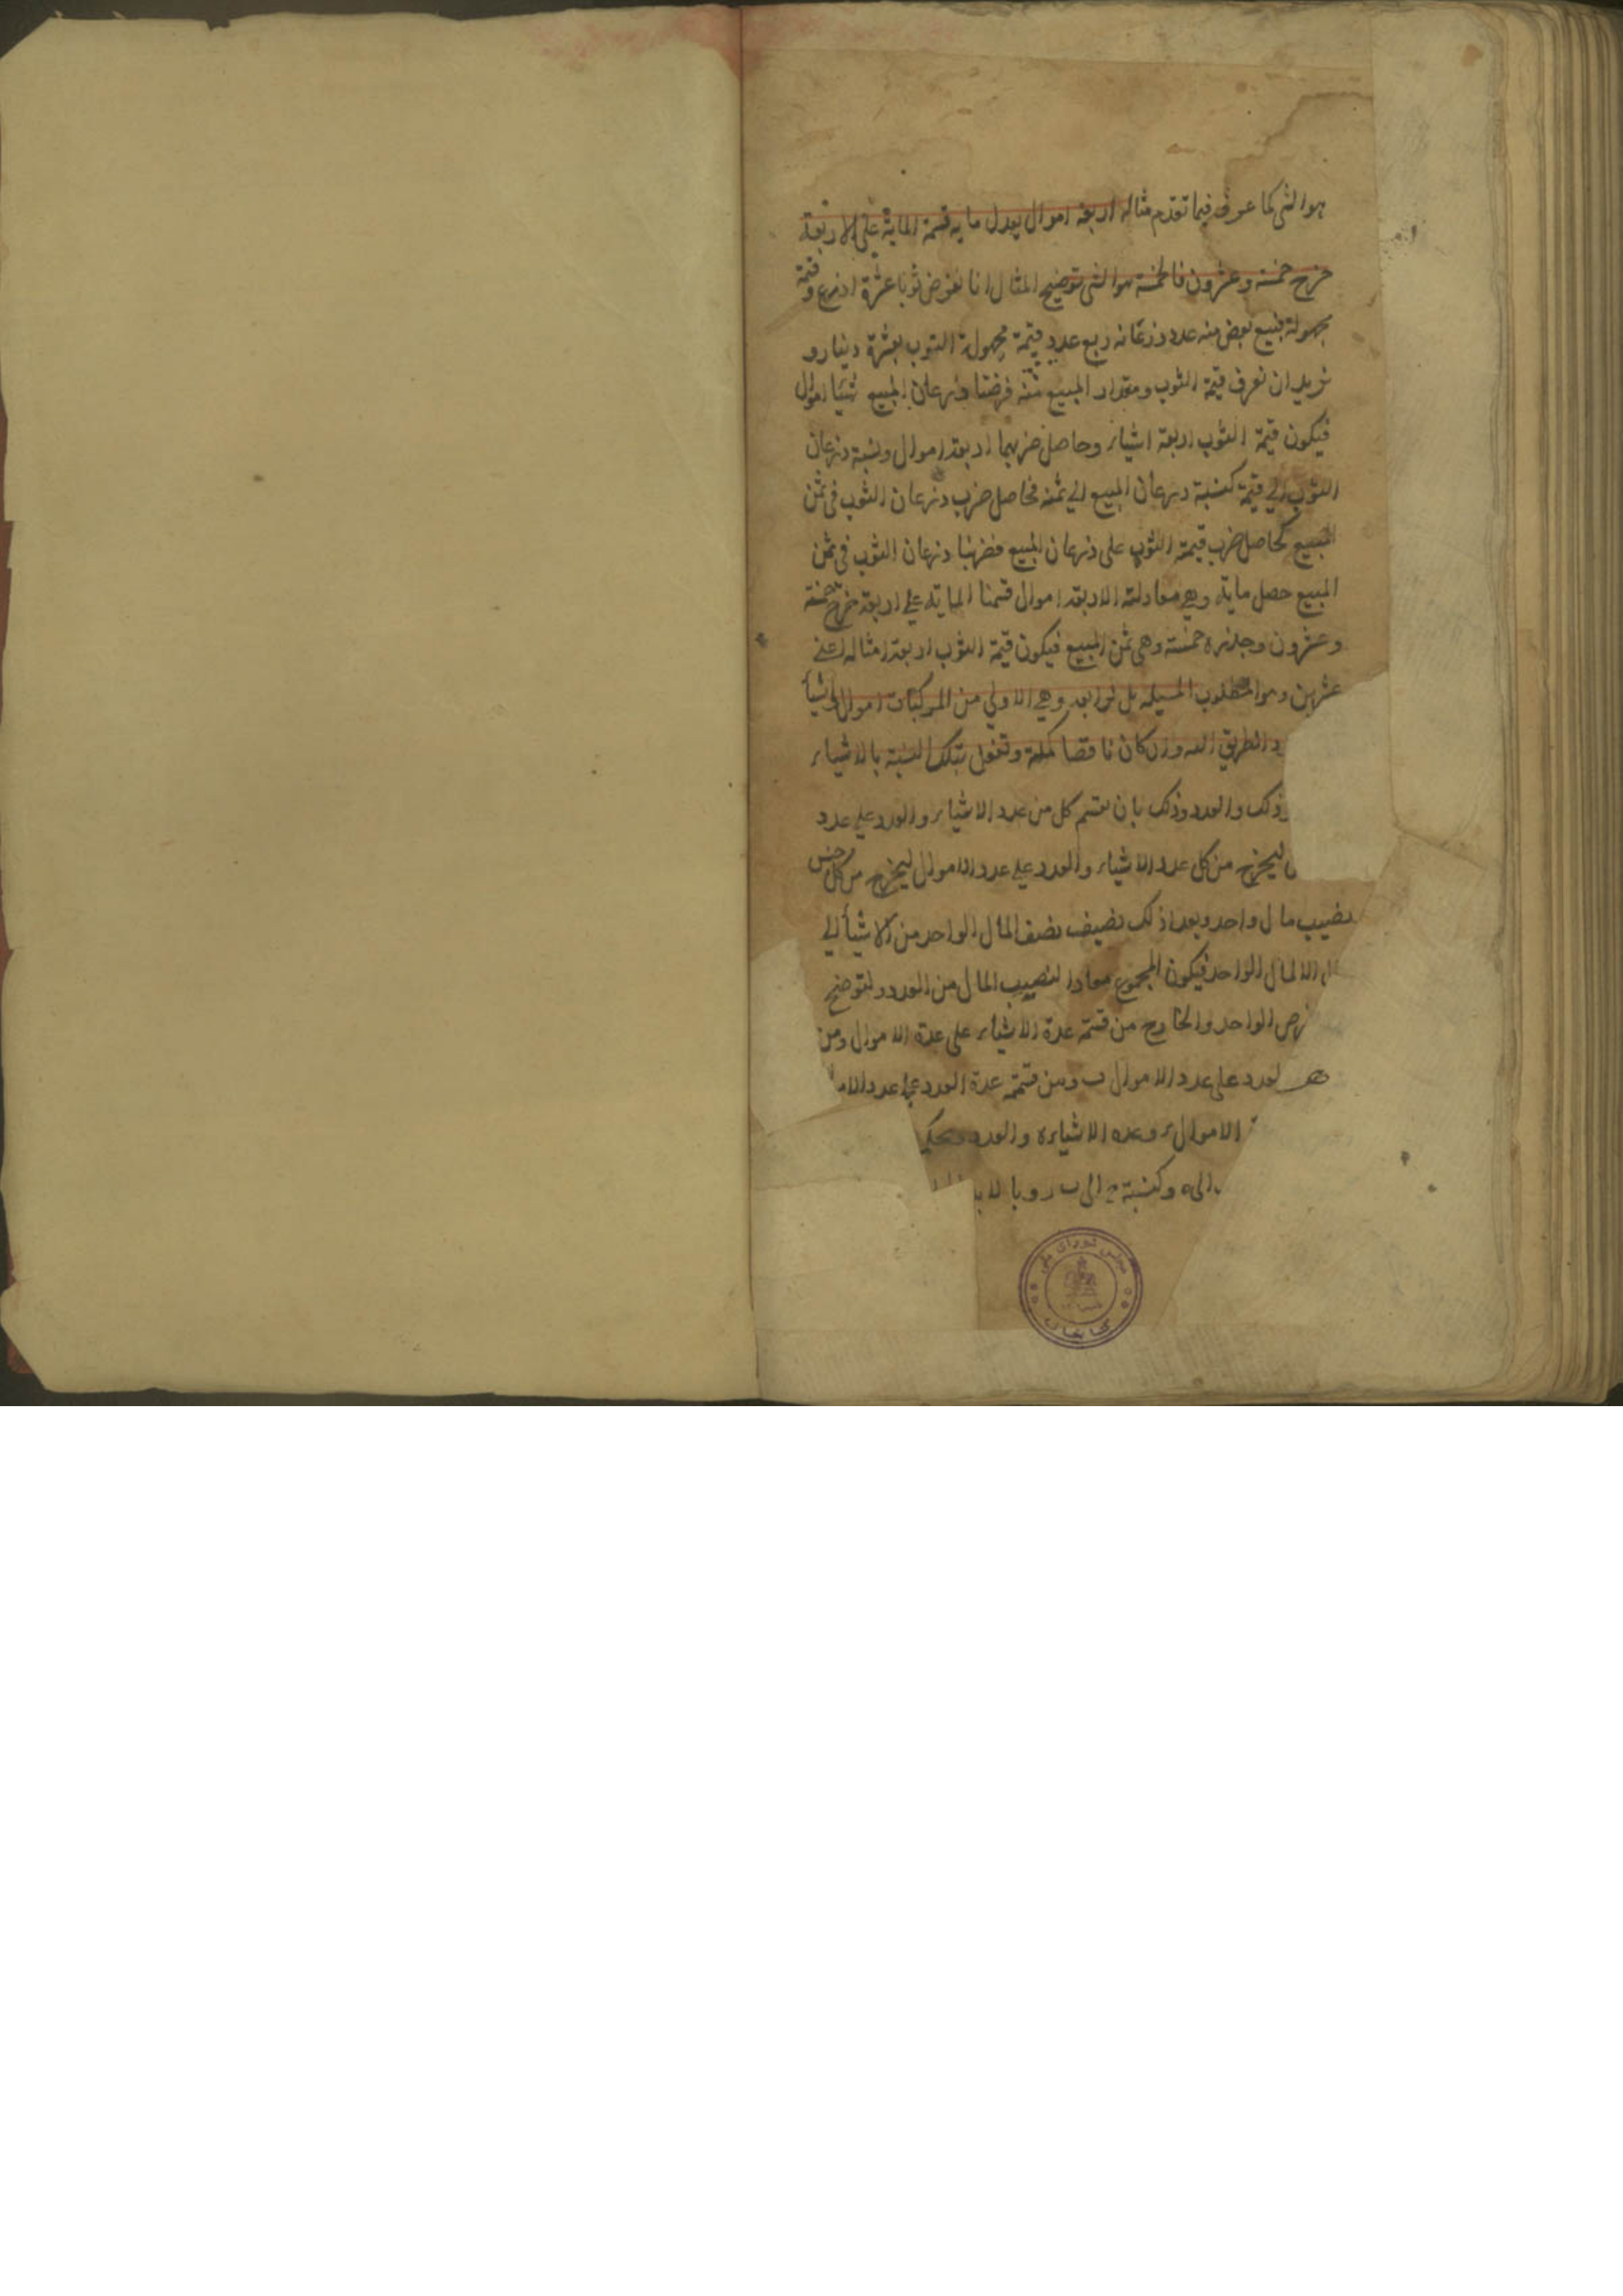 هو الشی کما عرفت فیما تقدم مثاله اربعة اموال یعدل مایة قسمة المایة علی الاربعة
خرج خمسة وعشرون فالخمسة هو الشی توضیح المثال انا نفرض ثوبا عشرة اذرع وقیمة
مجهولة فبیع بعض منه عدد ذرعانه ربع عدد قیمة مجهولة الثوب بعشرة دینار و
نرید ان نعرف قیمة الثوب ومقدار المبیع منه فرضنا ذرعان المبیع شیئا اموال
فیکون قیمة الثوب اربعة اشیاء وحاصل ضربهما اربعة اموال ونسبة ذرعان
الثوب الی قیمة کنسبة ذرعان المبیع الی ثمنه فحاصل ضرب ذرعان الثوب فی ثمن
المبیع کحاصل ضرب قیمة الثوب علی ذرعان المبیع فضربنا ذرعان الثوب فی ثمن
المبیع حصل مایة وهی معادلة الاربعة اموال قسمنا المایة علی اربعة خرج خمسة
وعشرون وجذره خمسة وهی ثمن المبیع فیکون قیمة الثوب اربعة امثاله اعنی
عشرین وهو المطلوب المسیلة الرابعة وهی الاولی من المرکبات اموال واشیأ
الطریق وان کان ناقصا کملة وتفعل بتلک النسبة بالاشیاء
وذلک والعدد وذلک بان یقسم کل من عدد الاشیاء والعدد علی عدد
لیخرج من کل عدد الاشیاء والعدد علی عدد الاموال لیخرج من کل جنس
نصیب مال واحد وبعد ذلک نضیف نصف المال الواحد من الاشیأ الی
المال الواحد فیکون المجموع معادلا لنصیب المال من العدد ولتوضیح
الواحد والخارج من قسمة عدة الاشیاء علی عدة الاموال ومن
العدد علی عدد الاموال ب ومن قسمة عدة العدد علی عدد الاموا
الاموال وعدة الاشیاء ه والعدد
الی ه وکنسبة ح الی ب
مجلس شورای ملی
کتابخانه